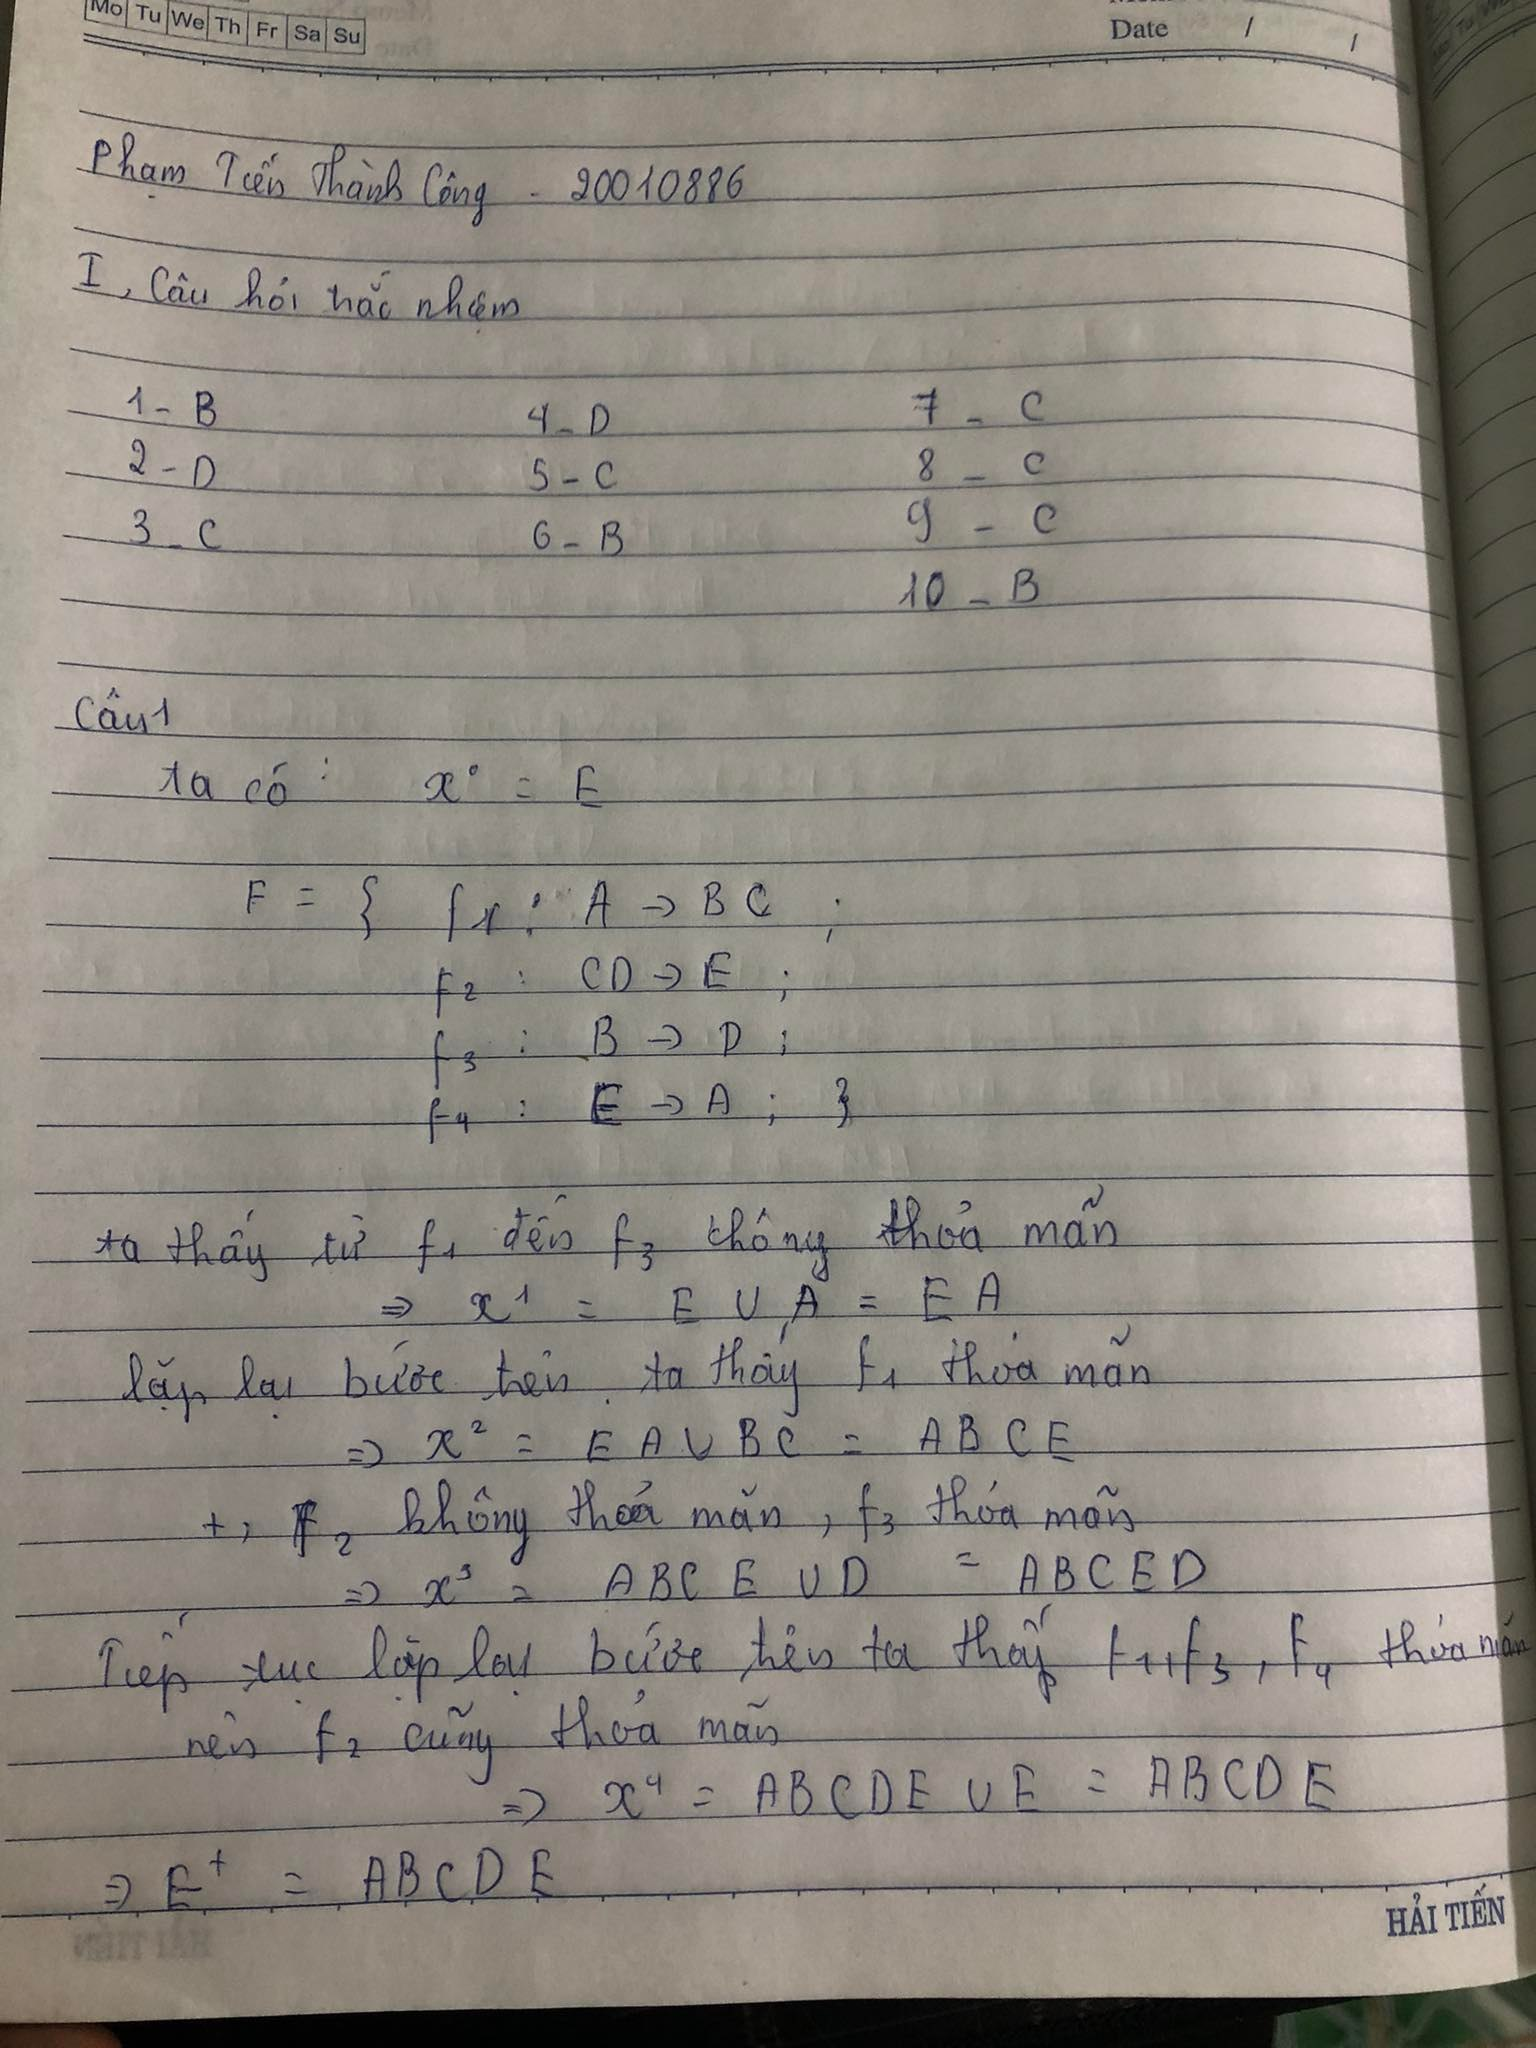 Mo Tu We Th Fr Sa Su
Date / /
Phạm Tiến Thành Công - 20010886
I, Câu hỏi trắc nhiệm
1 - B 4 - D 7 - C
2 - D 5 - C 8 - C
3 - C 6 - B 9 - C
10 - B
Câu 1
ta có : x⁰ = E
F = { f1 : A → BC ;
f2 : CD → E ;
f3 : B → D ;
f4 : E → A ; }
ta thấy từ f1 đến f3 không thoả mãn
⇒ x¹ = E U A = EA
lặp lại bước trên ta thấy f1 thỏa mãn
⇒ x² = EA U BC = ABCE
+, f2 không thoả mãn, f3 thỏa mãn
⇒ x³ = ABCE U D = ABCED
Tiếp tục lặp lại bước trên ta thấy f1, f3, f4 thỏa mãn
nên f2 cũng thỏa mãn
⇒ x⁴ = ABCDE U E = ABCDE
⇒ E⁺ = ABCDE
HẢI TIẾN